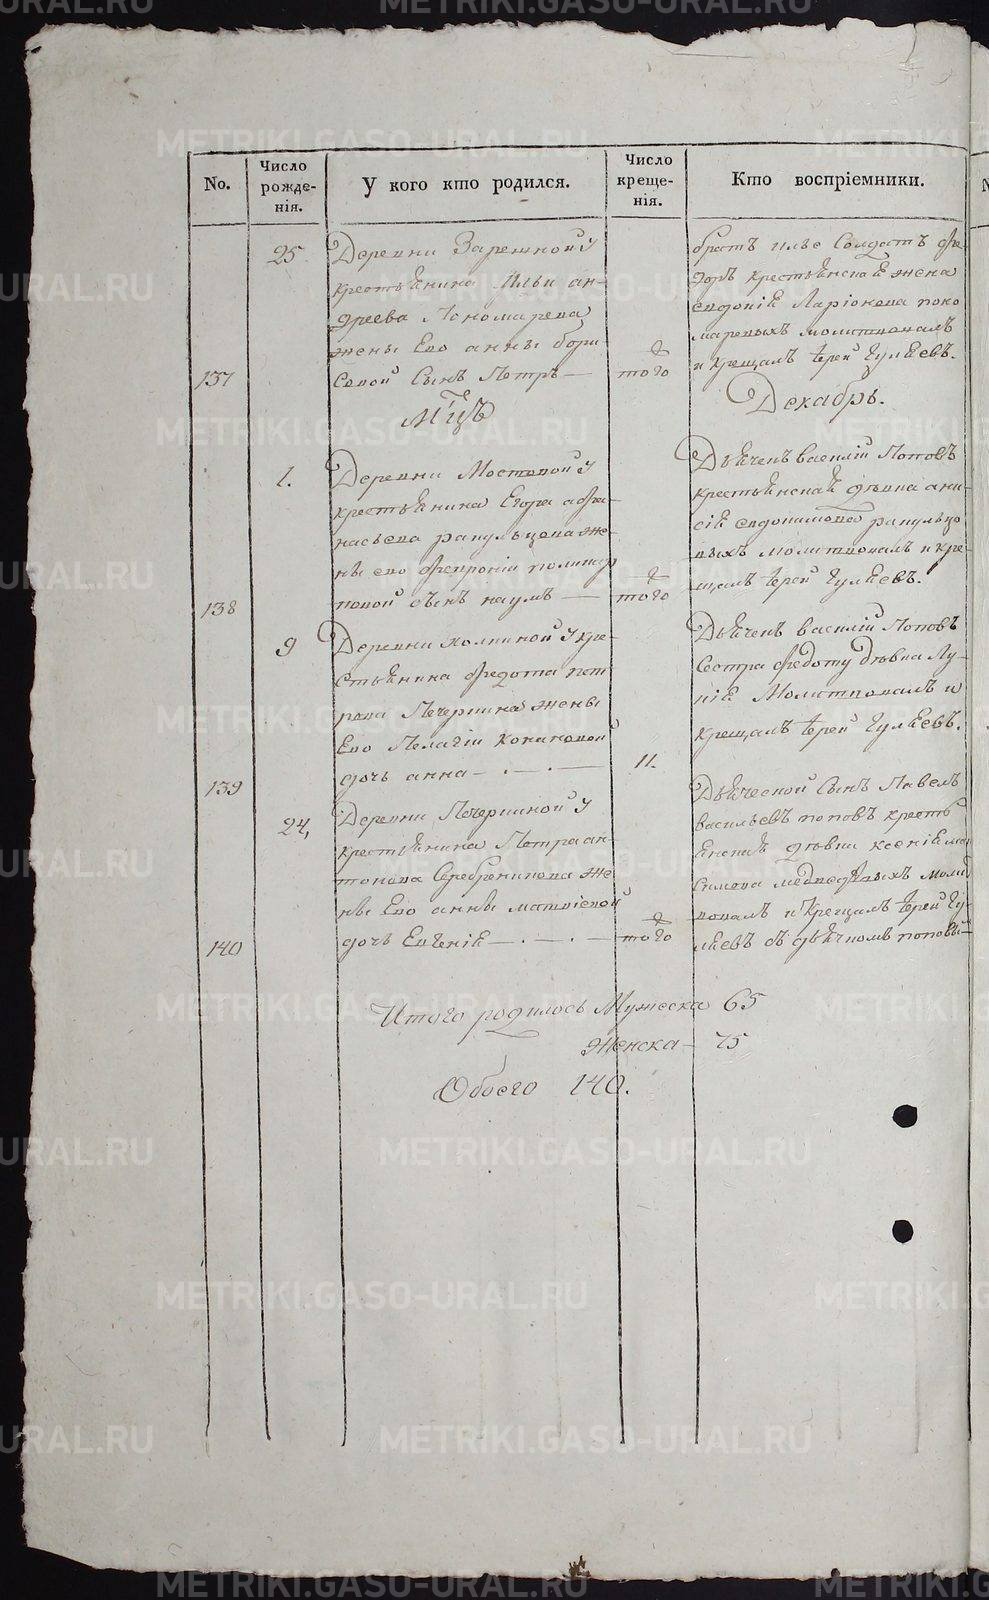 METRIKI.GASO-URAL.RU
No.
Число рожде-нія.
У кого кто родился.
Число креще-нія.
Кто воспріемники.
25
Деревни Заречной у
крестьянина Ильи ан-
дреева Пономарева
жены Его анны бори
совой Сынъ Петръ —
137
того
братъ илье Солдатъ фе-
доръ крестьянская жена
евдокія Ларіонова поно
маревыхъ молитвовалъ
и крещалъ іерей Гуляевъ.
Мцъ
Декабрь.
1.
Деревни Мостовой у
крестьянина Егора афа-
насьева рапульцова же-
ны его февроніи поликар
повой сынъ наумъ —
138
того
Дьяченъ василій Поповъ
крестьянская девка ани-
сія евдокимова рапульцо
выхъ молитвовалъ и кре-
щалъ іерей Гуляевъ.
9
Деревни колпиной у кре-
стьянина федота пет
рова Печеркина жены
Его Пелагіи Кононовой
дочь анна — . — . —
139
11.
Дьяченъ василій Поповъ
Сестра федоту девка Лу-
кія Молитвовалъ и
крещалъ іерей Гуляевъ.
24,
Деревни Печеркиной у
крестьянина Петра ан-
тонова Серебреникова же
ны Его анны матвіевой
дочь Евгенія — . — . —
140
того
Дьяческой Сынъ Павелъ
васильевъ поповъ кресть
янская девки ксенія ма
симова медведевыхъ моли
вовалъ и Крещалъ іерей Гу-
ляевъ съ дьячкомъ поповы—
Итого родилось Мужеска 65
Женска — 75
Обоего 140.